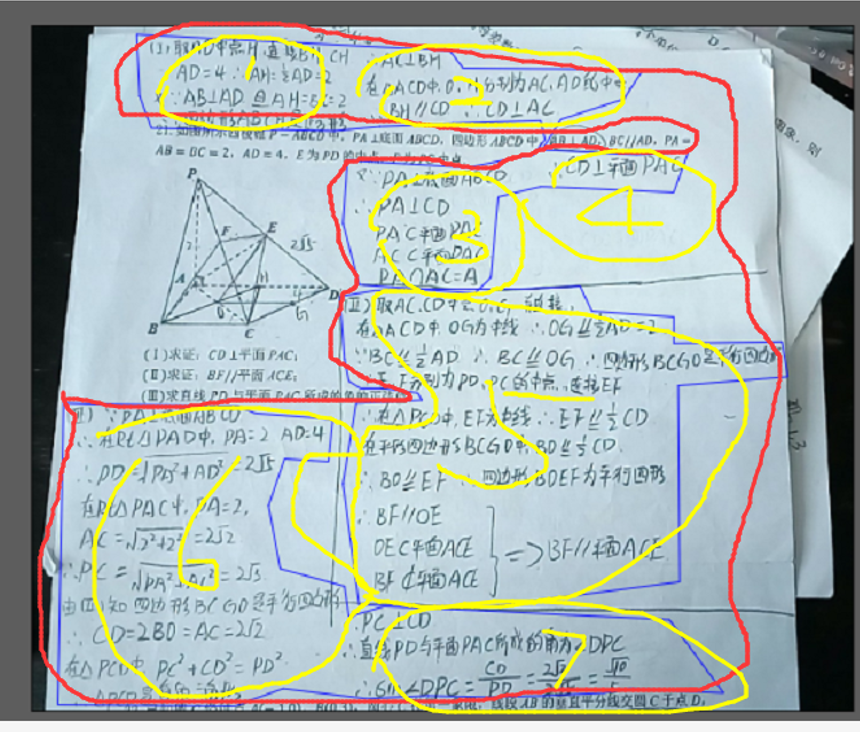 (I)取AD中点H,连接BH,CH
AD=4 ∴AH=½AD=2
又∵AB⊥AD 且AH=BC=2
1
AC⊥BH
在△ACD中,O,H分别为AC,AD的中点
BH∥CD ∴CD⊥AC
2
21.如图所示四棱锥P-ABCD中,PA⊥底面ABCD,四边形ABCD中,AB⊥AD,BC∥AD,PA=
AB=BC=2,AD=4,E为PD的中点,F为PC中点.
P
F
E
2√5
2
A
H
D
G
B
C
(Ⅰ)求证:CD⊥平面PAC;
(Ⅱ)求证:BF∥平面ACE;
(Ⅲ)求直线PD与平面PAC所成的角的正弦值
又∵PA⊥底面ABCD
∴PA⊥CD
PA⊂平面PAC
AC⊂平面PAC
PA∩AC=A
3
∴CD⊥平面PAC
4
(Ⅱ)取AC,CD中点O,G,连接
在△ACD中,OG为中线 ∴OG∥½AD=2
∵BC∥½AD ∴BC∥OG ∴四边形BCGO是平行四边形
E,F分别为PD,PC的中点,连接EF
∴在△PCD中,EF为中线 ∴EF∥½CD
在平行四边形BCGO中,BO∥½CD
∴BO∥EF ∴四边形BOEF为平行四边形
∴BF∥OE
OE⊂平面ACE
BF⊄平面ACE
⇒BF∥平面ACE
5
∵PA⊥底面ABCD
∴在Rt△PAD中,PA=2 AD=4
∴PD=√PA²+AD²=2√5
在Rt△PAC中,PA=2,
AC=√2²+2²=2√2
∴PC=√PA²+AC²=2√3
由(Ⅱ)知四边形BCGO是平行四边形
∴CD=2BO=AC=2√2
在△PCD中,PC²+CD²=PD²
6
PC⊥CD
∴直线PD与平面PAC所成的角为∠DPC
∴sin∠DPC=CD/PD=2√2/2√5=√10/5
7
线段AB的垂直平分线交圆C于点D,